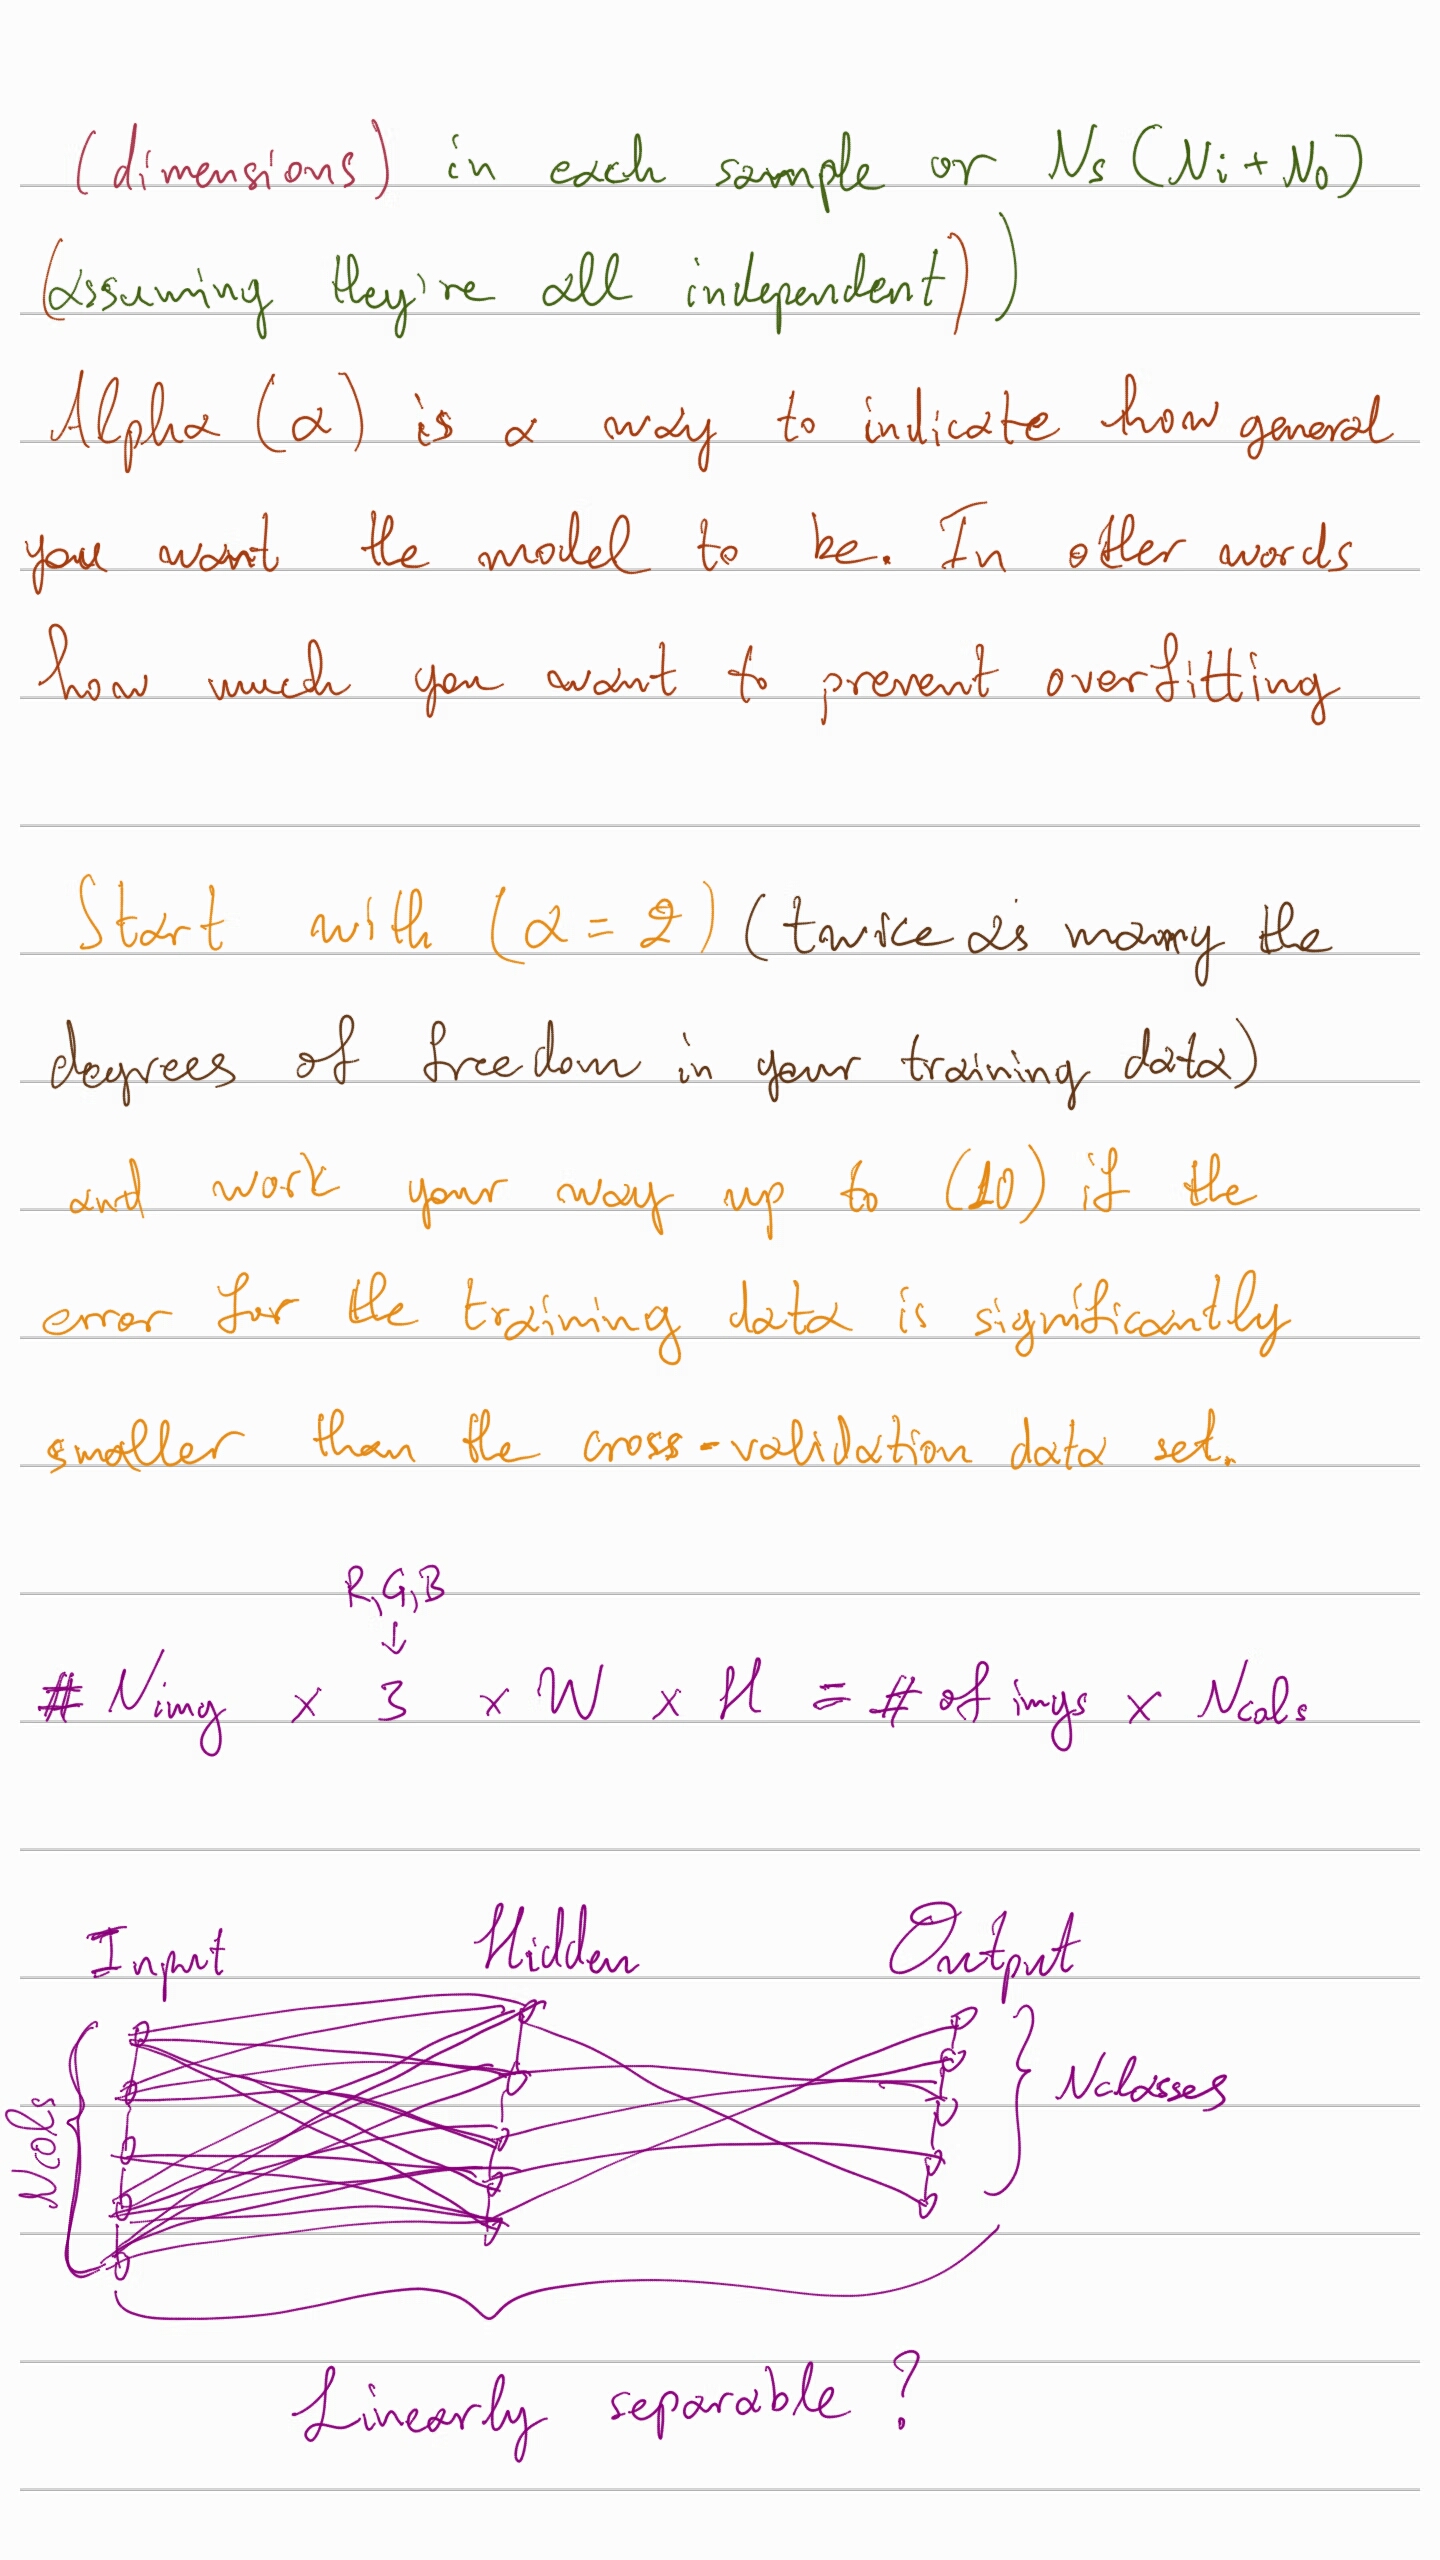 (dimensions) in each sample or Ns (Ni + No)
(assuming they're all independent))
Alpha (α) is a way to indicate how general
you want the model to be. In other words
how much you want to prevent overfitting
Start with (α = 2) (twice as many the
degrees of freedom in your training data)
and work your way up to (10) if the
error for the training data is significantly
smaller than the cross-validation data set.
R,G,B
↓
# Nimg x 3 x W x H = # of imgs x Ncols
Input Hidden Output
Ncols
Nclasses
Linearly separable ?